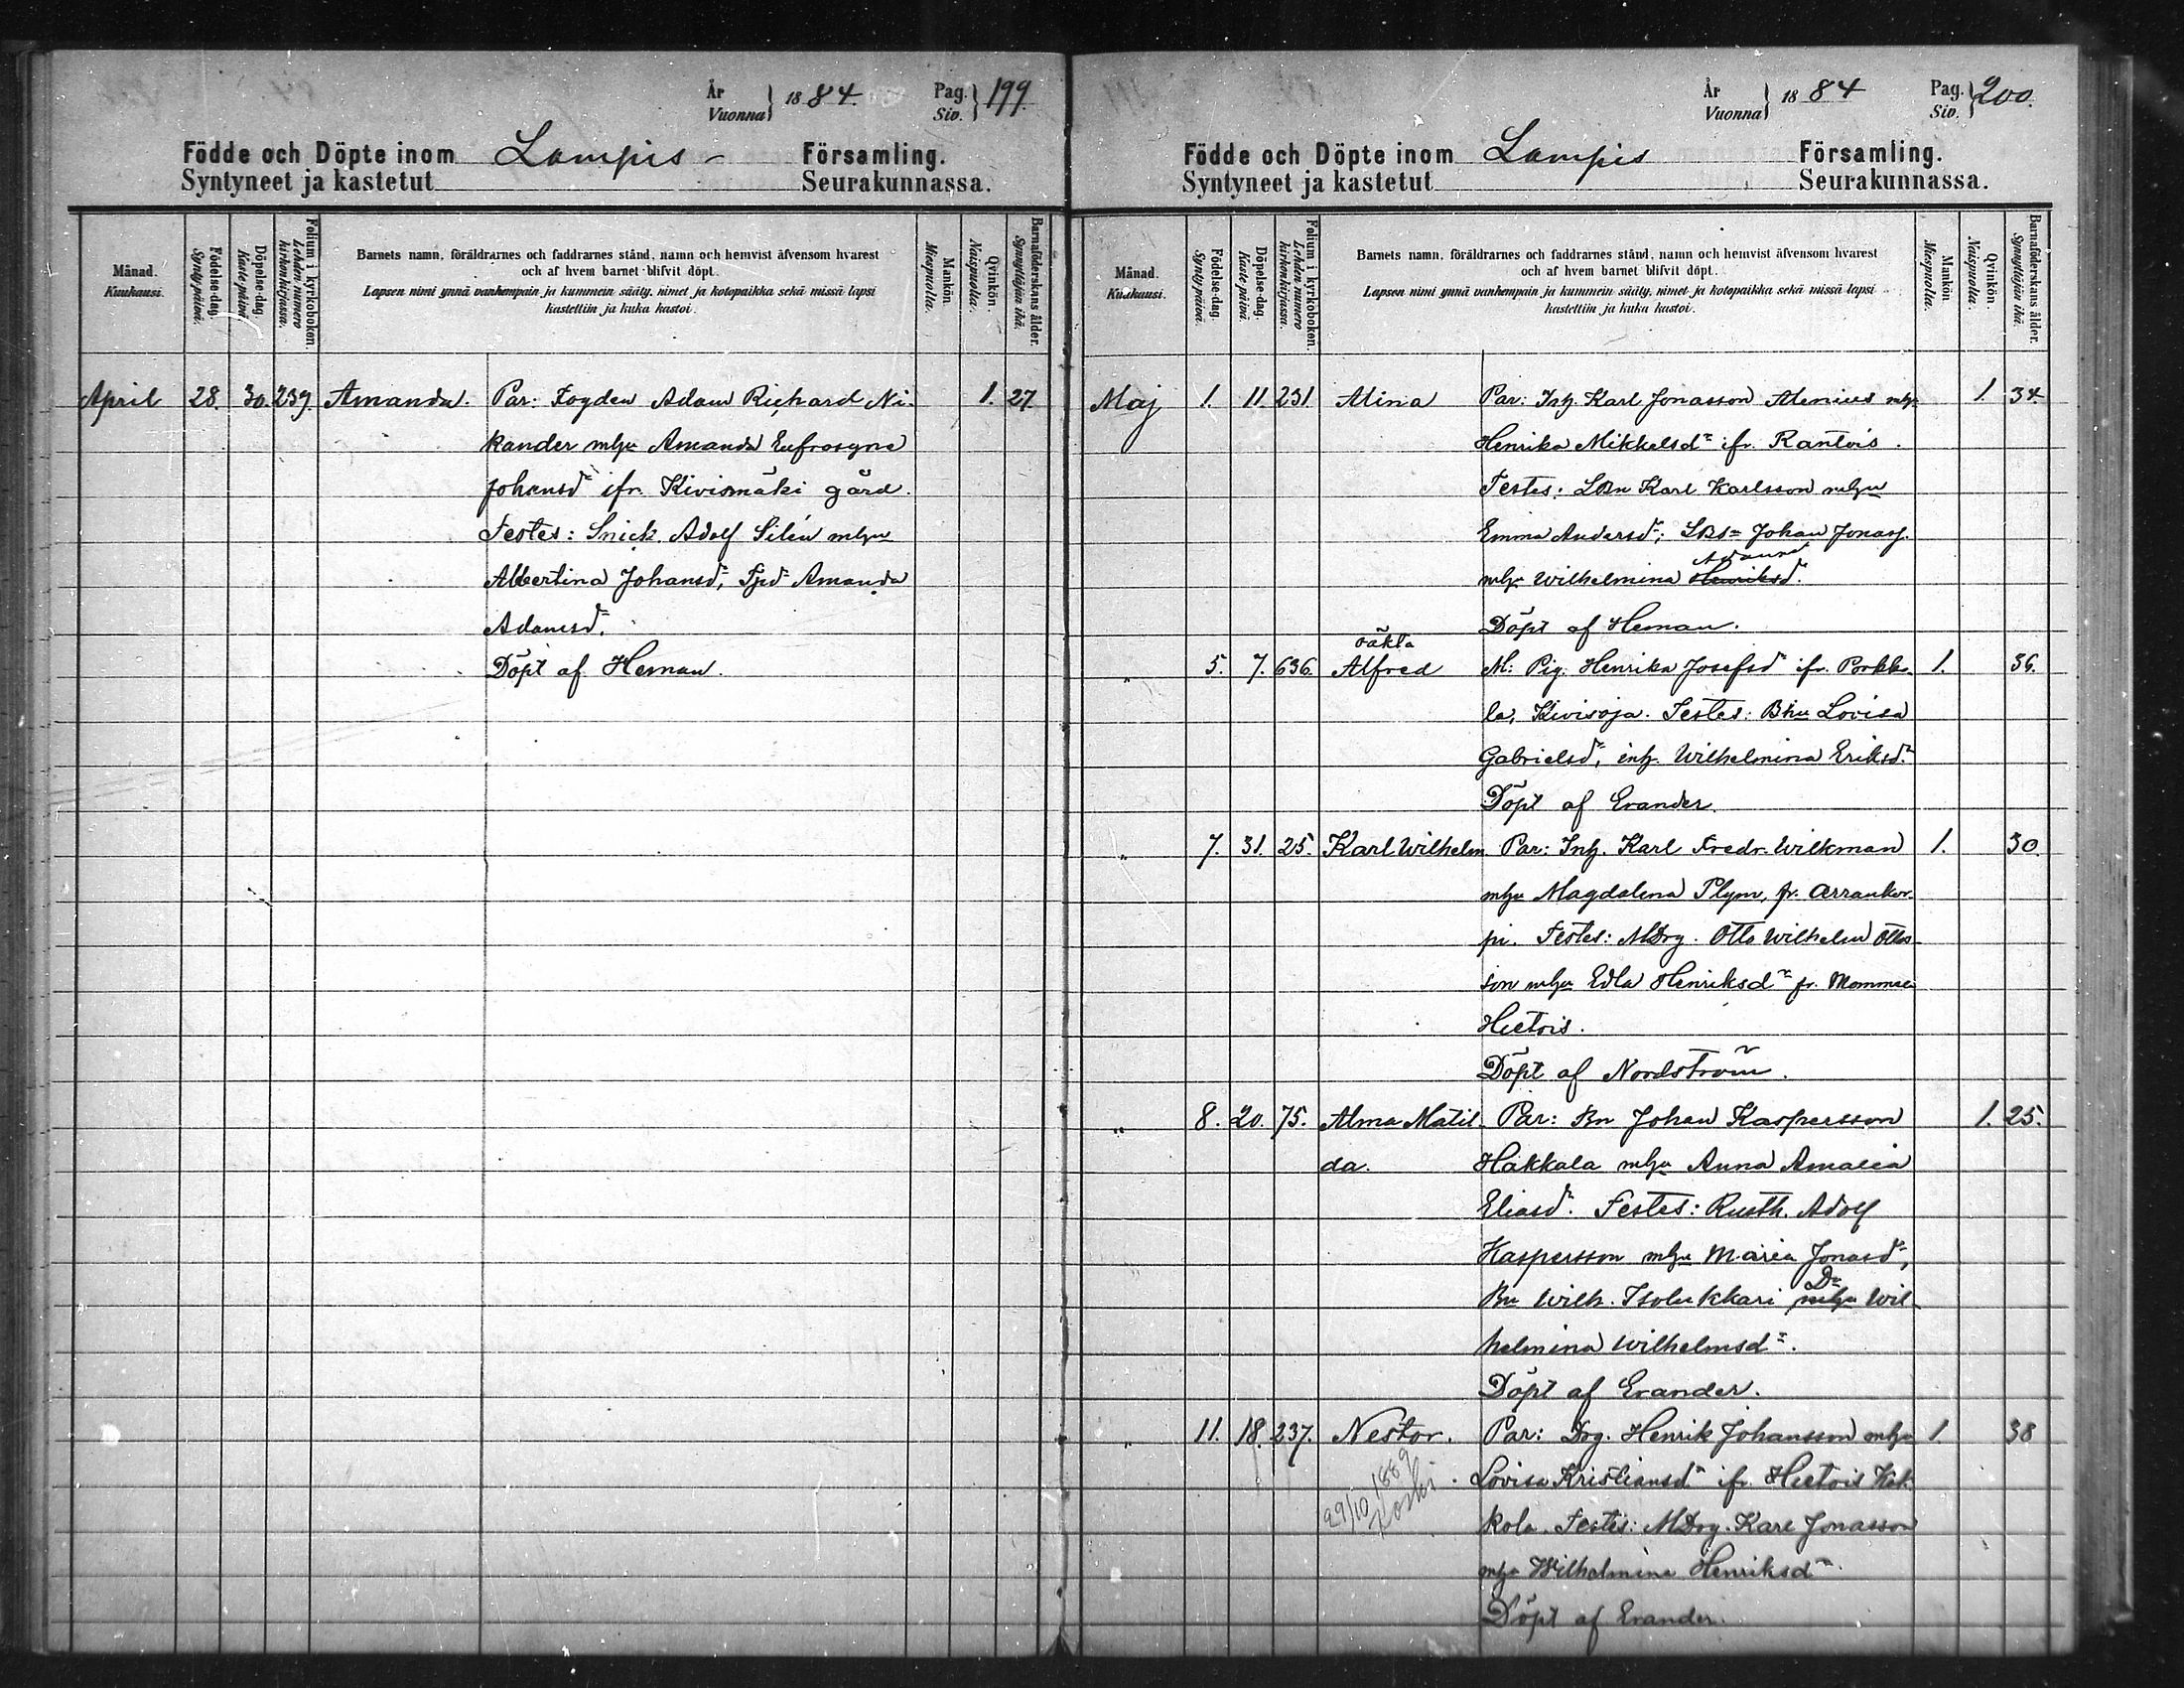 År
Vuonna } 1884. Pag.
Siv. } 199.
Födde och Döpte inom Lampis Församling.
Syntyneet ja kastetut Seurakunnassa.
Månad.
Kuukausi.
Födelse-dag.
Synty-päivä.
Döpelse-dag.
Kaste-päivä.
Folium i kyrkoboken.
Lehden numero kirkonkirjassa.
Barnets namn, föräldrarnes och faddrarnes stånd, namn och hemvist äfvensom hvarest
och af hvem barnet blifvit döpt.
Lapsen nimi ynnä vanhempain ja kummein sääty, nimet ja kotopaikka sekä missä lapsi
kastettiin ja kuka kastoi.
Mankön.
Miespuolia.
Qvinkön.
Naispuolia.
Barnaföderskans ålder.
Synnyttäjän ikä.
April 28. 30. 239. Amanda. Par: Fogden Adam Richard Ni- 1. 27.
kander mhu Amanda Eufrosyne
Johansdr ifr. Kivismäki gård.
Testes: Snick. Adolf Silén mhu
Albertina Johansdr, Amanda
Adamsdr.
Döpt af Heman.
År
Vuonna } 1884 Pag.
Siv. } 200.
Födde och Döpte inom Lampis Församling.
Syntyneet ja kastetut Seurakunnassa.
Månad.
Kuukausi.
Födelse-dag.
Synty-päivä.
Döpelse-dag.
Kaste-päivä.
Folium i kyrkoboken.
Lehden numero kirkonkirjassa.
Barnets namn, föräldrarnes och faddrarnes stånd, namn och hemvist äfvensom hvarest
och af hvem barnet blifvit döpt.
Lapsen nimi ynnä vanhempain ja kummein sääty, nimet ja kotopaikka sekä missä lapsi
kastettiin ja kuka kastoi.
Mankön
Miespuolia.
Qvinkön.
Naispuolia.
Barnaföderskans ålder.
Synnyttäjän ikä.
Maj 1. 11. 231. Alina Par: Inh. Karl Jonasson Alenius mhu 1. 34.
Henrika Mikkelsdr ifr. Rantois.
Testes: LBn Karl Karlsson mhu
Emma Andersdr; Johan Jonass.
Adamsd
mhu Wilhelmina Henriksd.
Döpt af Heman.
oäkta
" 5. 7. 636. Alfred M: Pig. Henrika Josefsdr ifr. Porkka- 1. 36.
la, Kivioja. Testes: Bhu Lovisa
Gabrielsdr, inh. Wilhelmina Eriksdr.
Döpt af Evander.
" 7. 31. 25. Karl Wilhelm Par: Inh. Karl Fredr. Wilkman 1. 30.
mhu Magdalena Plym, fr. Arrankor-
pi. Testes: MDrg. Otto Wilhelm Ottos-
son mhu Edla Henriksdr fr.
Hietois.
Döpt af Nordström.
" 8. 20. 75. Alma Matil- Par: Bn Johan Kaspersson 1. 25.
da. Hakkala mhu Anna Amalia
Eliasdr. Testes: Rusth. Adolf
Kaspersson mhu Maria Jonasdr,
Dr
Bn Wilh. Isolukkari mhu Wil-
helmina Wilhelmsdr.
Döpt af Evander.
" 11. 18. 237. Nestor. Par: Drg. Henrik Johansson mhu 1. 38
Lovisa Kristiansdr ifr. Hietois Hak-
29/10 1889
Koski
kola. Testes: MDrg. Karl Jonasson
mhu Wilhelmina Henriksdr
Döpt af Evander.